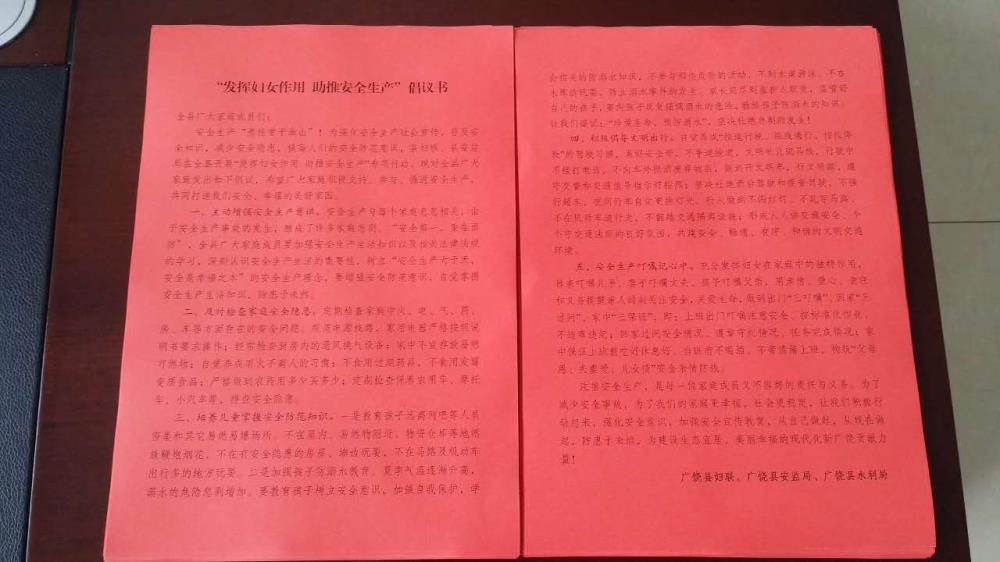 “发挥妇女作用 助推安全生产”倡议书
全县广大家庭成员们：
安全生产“责任重于泰山”！为强化安全生产社会宣传，普及安
全知识，减少安全隐患，提高人们的安全防范意识，县妇联、县安监
局在全县开展“发挥妇女作用 助推安全生产”专项行动。现对全县广大
家庭发出如下倡议，希望广大家庭积极支持、参与、推进安全生产，
共同打造我们安全、幸福的美好家园。
一、主动增强安全生产意识。安全生产与每个家庭息息相关，由
于安全生产事故的发生，酿成了许多家庭悲剧。“安全第一，重在预
防”，全县广大家庭成员要加强安全生产生活知识以及相关法律法规
的学习，深刻认识安全生产生活的重要性，树立“安全生产大于天，
安全是幸福之本”的安全生产理念，要增强安全防范意识，自觉掌握
安全生产生活知识，防患于未然。
二、及时检查家庭安全隐患。定期检查家庭中火、电、气、药、
房、车等方面存在的安全问题。规范电源线路，家用电器严格按照说
明书要求操作；经常检查厨房内的通风换气设备；家中不宜存放易燃
可燃物；自觉养成用火不离人的习惯；不食用过期药品，不食用发霉
变质食品；严格做到农药用多少买多少；定期检查保养农用车、摩托
车、小汽车等，排查安全隐患。
三、培养儿童掌握安全防范知识。一是教育孩子远离网吧等人员
密集和其它易燃易爆场所。不在室内、易燃物附近、物资仓库等地燃
放鞭炮烟花，不在有安全隐患的房屋、墙边玩耍，不在马路及机动车
出行多的地方玩耍。二是加强孩子防溺水教育。夏季气温逐渐升高，
溺水的危险悲剧增加。要教育孩子树立安全意识，加强自我保护，学
会相关的防溺水知识，不参与游泳危险的活动，不到水深游泳、不在
水库边玩耍，防止溺水事件的发生。家长应尽到监护人职责，监管好
自己的孩子，要向孩子反复强调溺水的危险，教给孩子防溺水的知识。
让我们谨记：“珍爱生命，预防溺水”，坚决杜绝悲剧发生！
四、积极倡导文明出行。自觉养成“按道行驶、按线通行、按位停
放”的驾驶习惯，系好安全带，不争道抢道，文明礼让斑马线，行驶中
不拨打电话，不向车外抛洒废弃物品，做到开文明车，行文明路，遵
守交警和交通信号指令灯指挥；坚决杜绝酒后驾驶和疲劳驾驶，不强
行超车，夜间行车自觉更换灯光。行人做到不闯红灯、不乱穿马路、
不在机动车道行走，不翻越交通隔离设施；形成人人讲交通安全、个
个守交通法规的良好氛围，共建安全、畅通、有序、和谐的文明交通
环境。
五、安全生产叮嘱记心中。充分发挥妇女在家庭中的独特作用，
母亲叮嘱儿子、妻子叮嘱丈夫、孩子叮嘱父亲，用亲情、爱心、责任
和义务提醒亲人时刻关注安全，关爱生命，做到出门“三叮嘱”，回家“三
过问”，家中“三保证”，即：上班出门叮嘱注意安全、按标准化作业、
不违章违纪；回家过问安全情况、遵章守纪情况、任务完成情况；家
中保证上班前吃好休息好、当班前不喝酒、不带情绪上班，构筑“父母
恩、夫妻爱、儿女情”安全亲情防线。
注重安全生产，是每一位家庭成员义不容辞的责任与义务。为了
减少安全事故，为了我们的家庭更幸福，社会更稳定，让我们积极行
动起来，强化安全意识，加强安全宣传教育，从自己做起，从现在做
起，防患于未然，为建设生态宜居、美丽幸福的现代化新广饶贡献力
量！
广饶县妇联、广饶县安监局、广饶县水利局